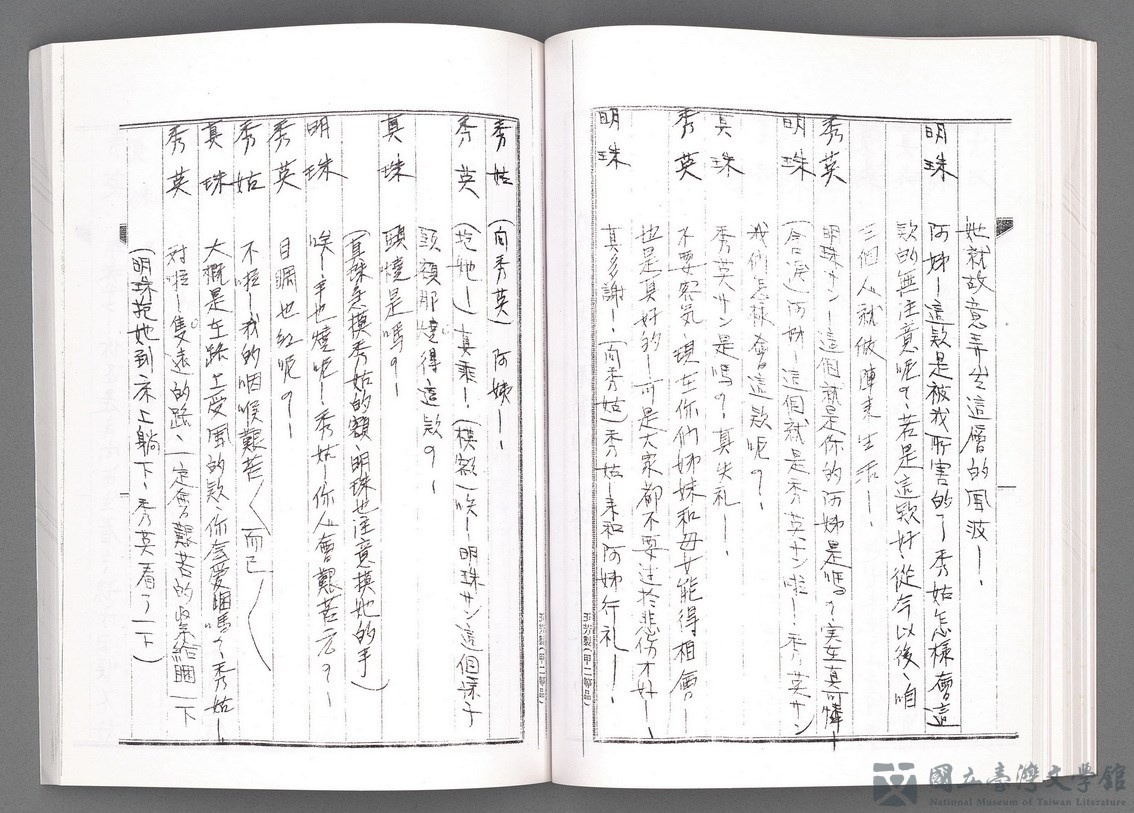 她就故意弄出這層的風波—.
明珠 阿姊—這款是被我所害的了—秀姑怎樣會這
款的無注意呢?若是這款好、從今以後、咱
三個人就做陣來生活—.
秀英 明珠サン—這個就是你的阿姊是嗎?、实在真可憐—
明珠 (含淚)阿姊—這個就是秀英サン啦!—秀英サン
我們怎樣會這款呢?.
真珠 秀英サン是嗎?真失礼—.
秀英 不要客氣現在你們姊妹和母女能得相會—
也是真好的—可是大家都不要過於悲伤才好—.
明珠 真多謝—.(向秀姑)秀姑—来和阿姊行礼—.
秀姑 (向秀英)阿姨—.
秀英 (抱她—)真乖—.(摸額)唉—明珠サン這個孩子
頭額那燒得這款?.
真珠 頭燒是嗎?—
(真珠急摸秀姑的額、明珠也注意摸她的手)
明珠 唉—手也燒呢—.秀姑—你人會艱苦否?—.
秀英 目睭也紅呢?—
秀姑 不啦—我的咽喉艱苦(而已)
真珠 大概是在路上受風的款、你會愛睏嗎?秀姑—
秀英 对啦—隻遠的路、一定會艱苦的緊給睏一下
(明珠抱她到床上躺下、秀英看了一下)
玉芳製(甲二部品)
國立臺灣文學館
National Museum of Taiwan Literature